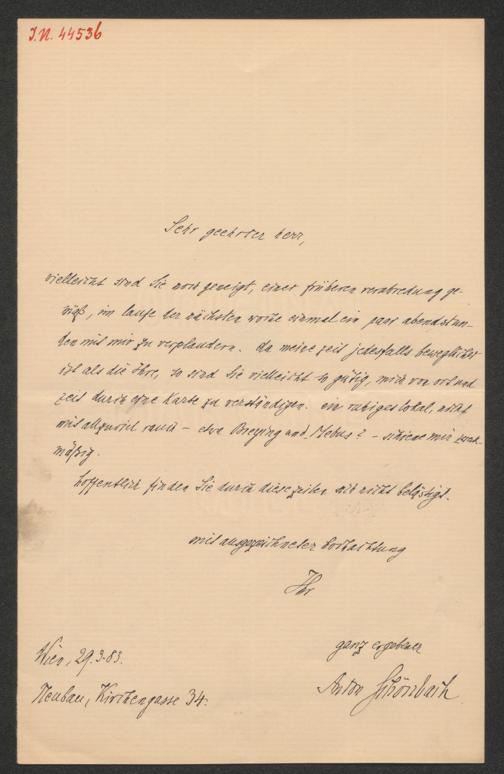 J.N. 44536
Sehr geehrter herr,
vielleicht sind Sie noch geneigt, einer früheren verabredung ge-
mäß, im laufe der nächsten woche einmal ein paar abendstun-
den mit mir zu verplaudern. da meine zeit jedesfalls beweglicher
ist als die Ihre, so sind Sie vielleicht so gütig, mich von ort und
zeit durch eine Karte zu verständigen. ein ruhiges lokal, nicht
mit allzuviel rauch – etwa Breying und Mebus? – schiene mir zweck-
mäßig.
hoffentlich finden Sie durch diese zeilen sich nicht belästigt.
mit ausgezeichneter hochachtung
Ihr
ganz ergebener
Anton Schönbach
Wien, 29.3.83.
Neubau, Kirchengasse 34.